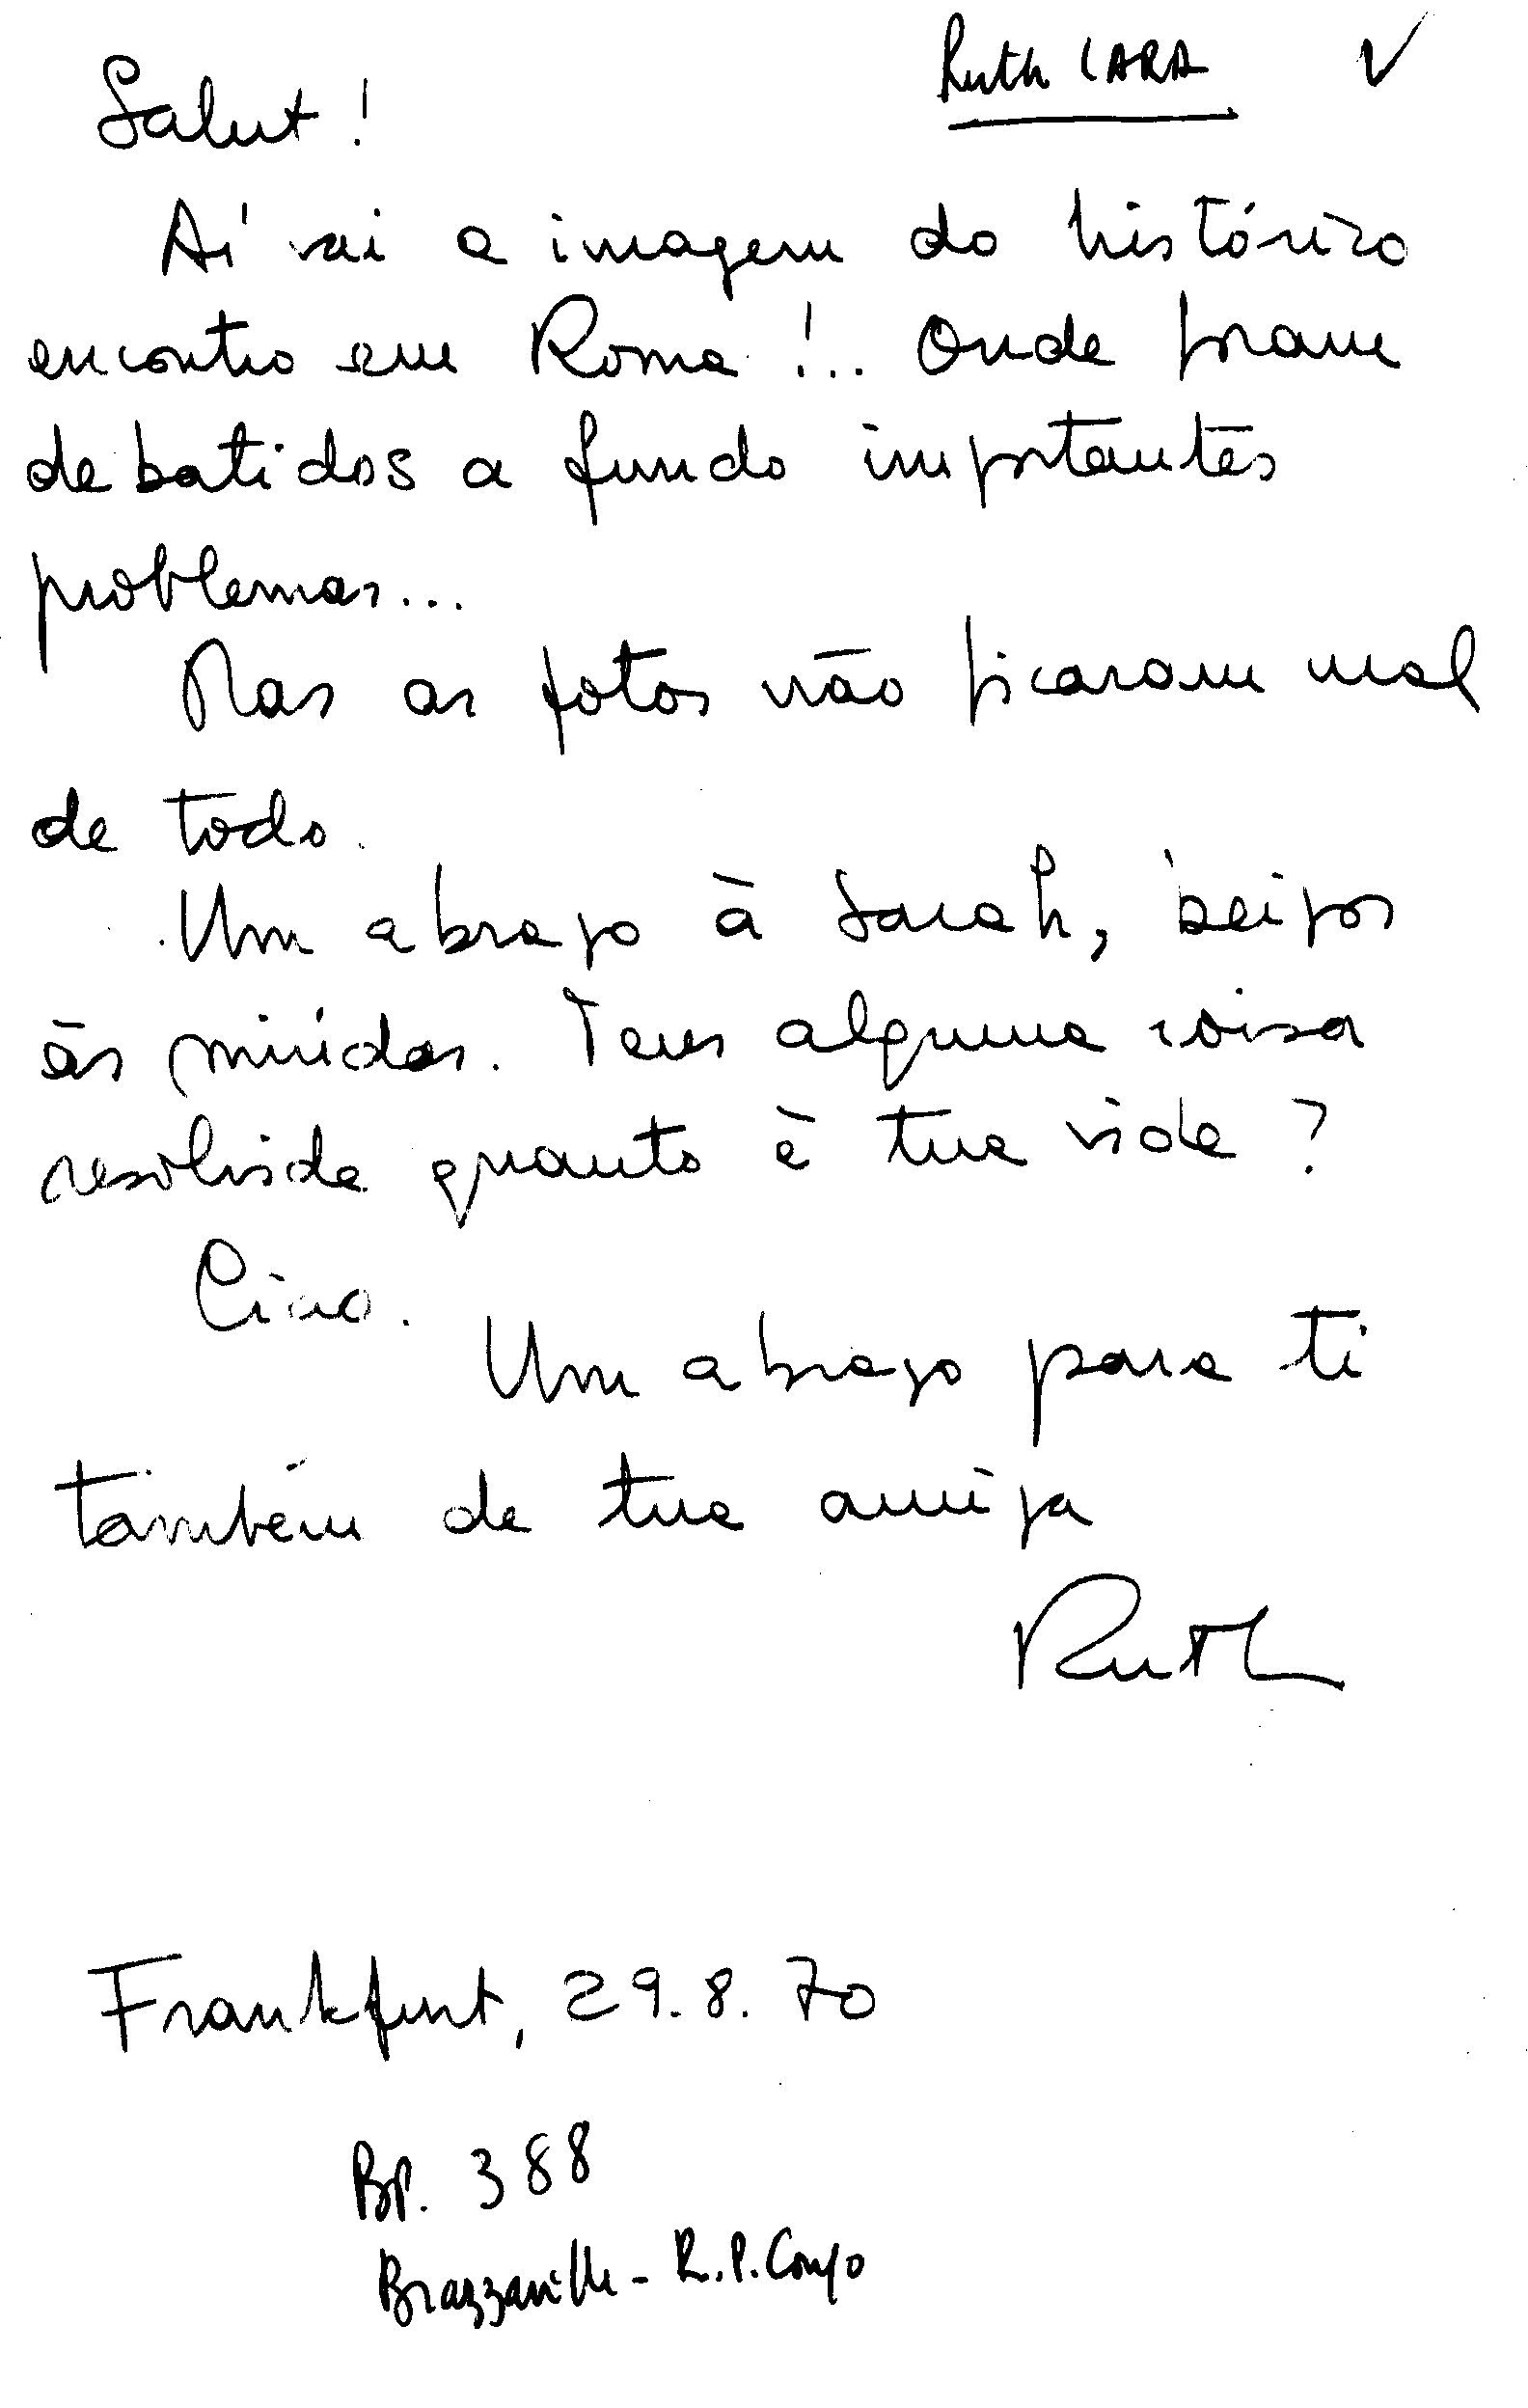 Ruth LARA ✓
Salut!
Aí vai a imagem do histórico
encontro em Roma!... Onde foram
debatidos a fundo importantes
problemas...
Mas as fotos não ficaram mal
de todo.
Um abraço à Sarah, beijos
às miúdas. Tens alguma coisa
resolvida quanto à tua vida?
Ciao.
Um abraço para ti
também da tua amiga
Ruth
Frankfurt, 29.8.70
BP. 388
Brazzaville - R.P. Congo